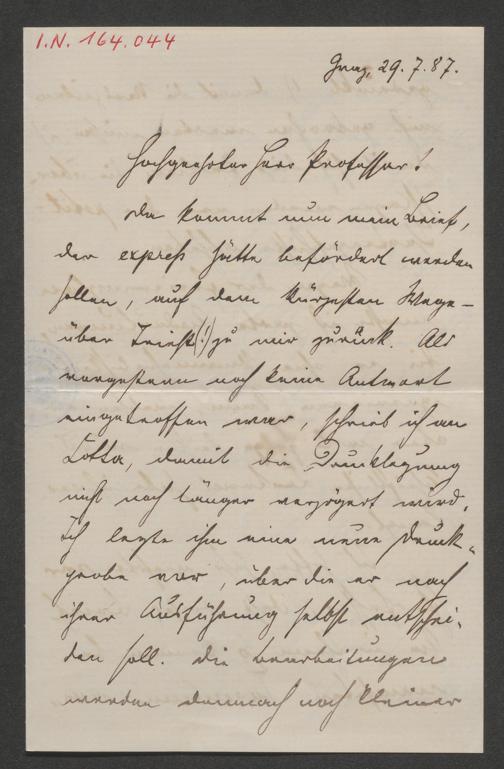 I.N. 164.044
Graz, 29.7.87.
Hochgeehrter Herr Professor!
Da kommt nun mein Brief,
der expreß hätte befördert werden
sollen, auf dem kürzesten Wege –
über Triest (!) zu mir zurück. Als
vorgestern noch keine Antwort
eingetroffen war, schrieb ich an
Cotta, damit die Drucklegung
nicht noch länger verzögert wird.
Ich legte ihm eine neue Druck-
probe vor, über die er nach
ihrer Ausführung selbst entschei-
den soll. Die Bearbeitungen
werden demnach noch kleiner